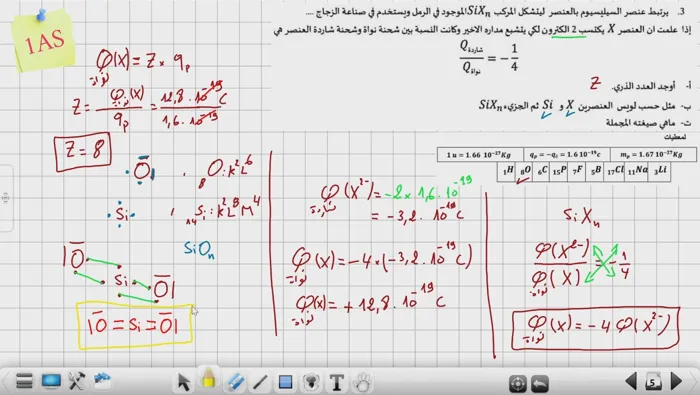 3. يرتبط عنصر السيليسيوم بالعنصر ليتشكل المركب SiXn الموجود في الرمل ويستخدم في صناعة الزجاج ....
إذا علمت ان العنصر X يكتسب 2 الكترون لكي يتشبع مداره الاخير وكانت النسبة بين شحنة نواة وشحنة شاردة العنصر هي
Qشاردة / Qنواة = − 1/4
أ- أوجد العدد الذري. Z
ب- مثل حسب لويس العنصرين X و Si ثم الجزيء SiXn
ت- ماهي صيغته المجملة
المعطيات
1 u = 1.66 10⁻²⁷Kg qp = −qe = 1.6 10⁻¹⁹c mp = 1.67 10⁻²⁷Kg
₁H ₈O ₆C ₁₅P ₇F ₅B ₁₇Cl ₁₁Na ₃Li
1AS
φ(X) = Z × qp
نواة
Z = φ(X) / qp = 12,8 · 10⁻¹⁹ C / 1,6 · 10⁻¹⁹
نواة
Z = 8
O , ₈O : K² L⁶
Si , ₁₄Si : K² L⁸ M⁴
SiOn
|O Si O|
|O = Si = O|
φ(X²⁻) = −2 × 1,6 · 10⁻¹⁹
شاردة
= −3,2 · 10⁻¹⁹ C
φ(X) = −4 × (−3,2 · 10⁻¹⁹ C)
نواة
φ(X) = + 12,8 · 10⁻¹⁹ C
نواة
Si Xn
φ(X²⁻) / φ(X) = − 1/4
نواة
φ(X) = −4 φ(X²⁻)
نواة
5